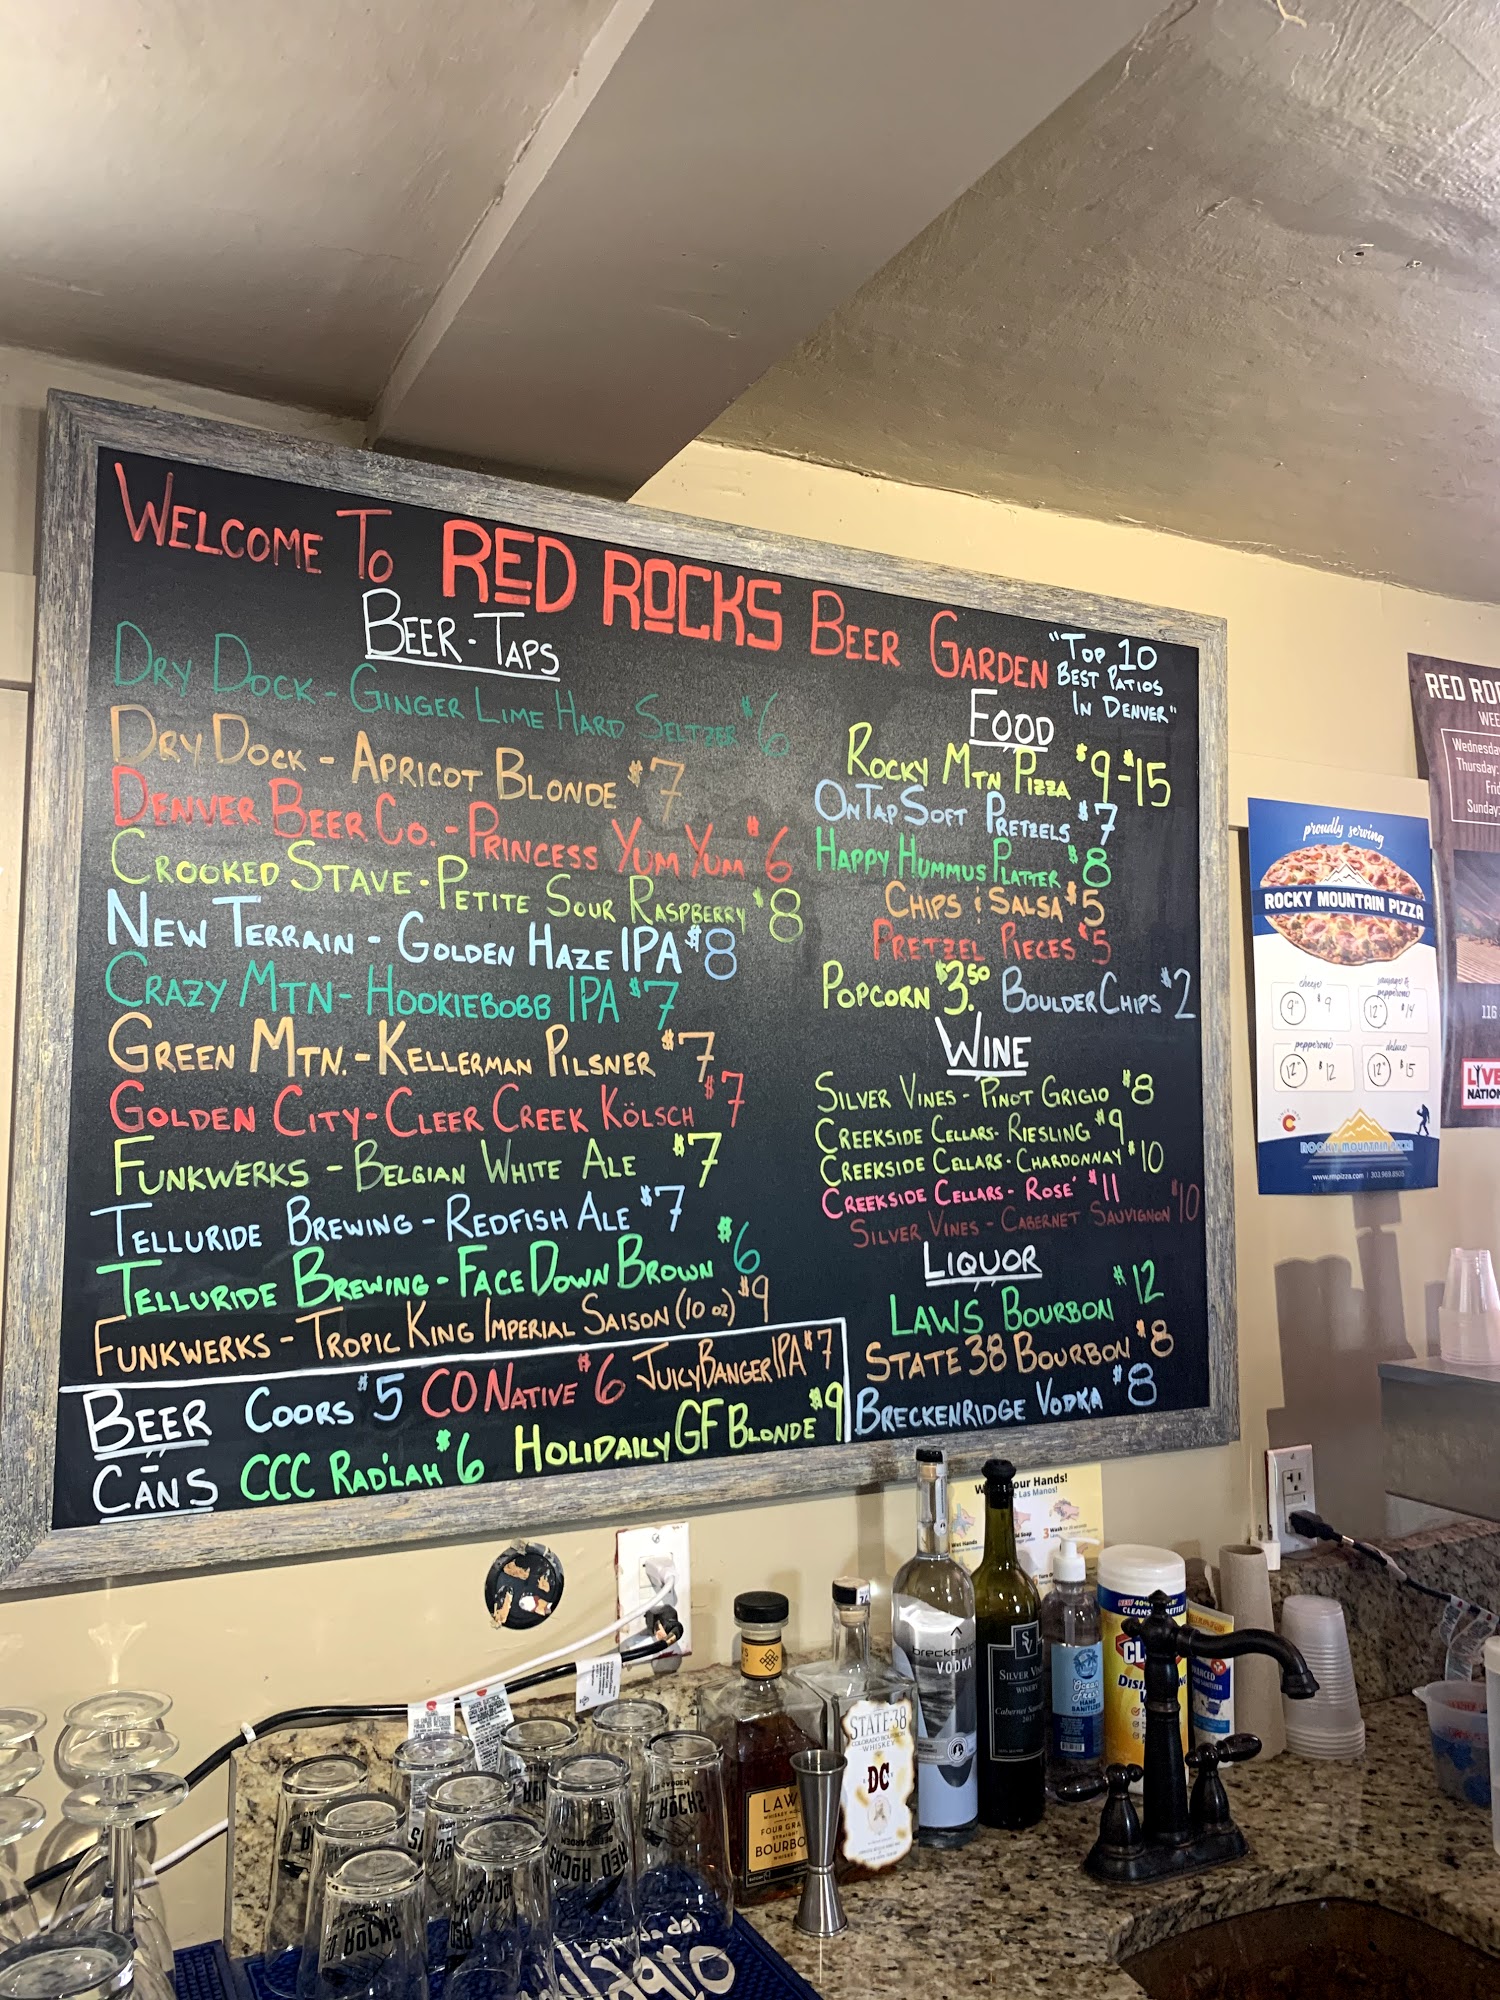 WELCOME TO RED ROCKS BEER GARDEN
"TOP 10
BEST PATIOS
IN DENVER"
BEER-TAPS
DRY DOCK - GINGER LIME HARD SELTZER $6
DRY DOCK - APRICOT BLONDE $7
DENVER BEER CO. - PRINCESS YUM YUM $6
CROOKED STAVE - PETITE SOUR RASPBERRY $8
NEW TERRAIN - GOLDEN HAZE IPA $8
CRAZY MTN - HOOKIEBOBB IPA $7
GREEN MTN. - KELLERMAN PILSNER $7
GOLDEN CITY - CLEER CREEK KÖLSCH $7
FUNKWERKS - BELGIAN WHITE ALE $7
TELLURIDE BREWING - REDFISH ALE $7
TELLURIDE BREWING - FACE DOWN BROWN $6
FUNKWERKS - TROPIC KING IMPERIAL SAISON (10 oz) $9
BEER
CANS
COORS $5 CO NATIVE $6 JUICY BANGER IPA $7
CCC RAD'LAH $6 HOLIDAILY GF BLONDE $9
FOOD
ROCKY MTN PIZZA $9-$15
ONTAP SOFT PRETZELS $7
HAPPY HUMMUS PLATTER $8
CHIPS & SALSA $5
PRETZEL PIECES $5
POPCORN $3.50 BOULDER CHIPS $2
WINE
SILVER VINES - PINOT GRIGIO $8
CREEKSIDE CELLARS - RIESLING $9
CREEKSIDE CELLARS - CHARDONNAY $10
CREEKSIDE CELLARS - ROSÉ $11
SILVER VINES - CABERNET SAUVIGNON $10
LIQUOR
LAWS BOURBON $12
STATE 38 BOURBON $8
BRECKENRIDGE VODKA $8
proudly serving
ROCKY MOUNTAIN PIZZA
cheese
9" $9
sausage & pepperoni
12" $14
pepperoni
12" $12
deluxe
12" $15
ROCKY MOUNTAIN PIZZA
www.rmpizza.com | 303.969.8505
RED RO
WEE
Wednesday
Thursday:
Frid
Sunday:
116
LIVE
NATION
our Hands!
Las Manos!
Wet Hands
Soap
3 Wash
breckenri
VODKA
SV
SILVER VINES
WINERY
Cabernet Sauv
2017
Ocean
Free
HAND
SANITIZER
CLEANS BETTER
CL
DISI
STATE 38
COLORADO BOURBON
WHISKEY
DC
LAWS
FOUR GRAIN
BOURBON
RED ROCKS
BEER GARDEN